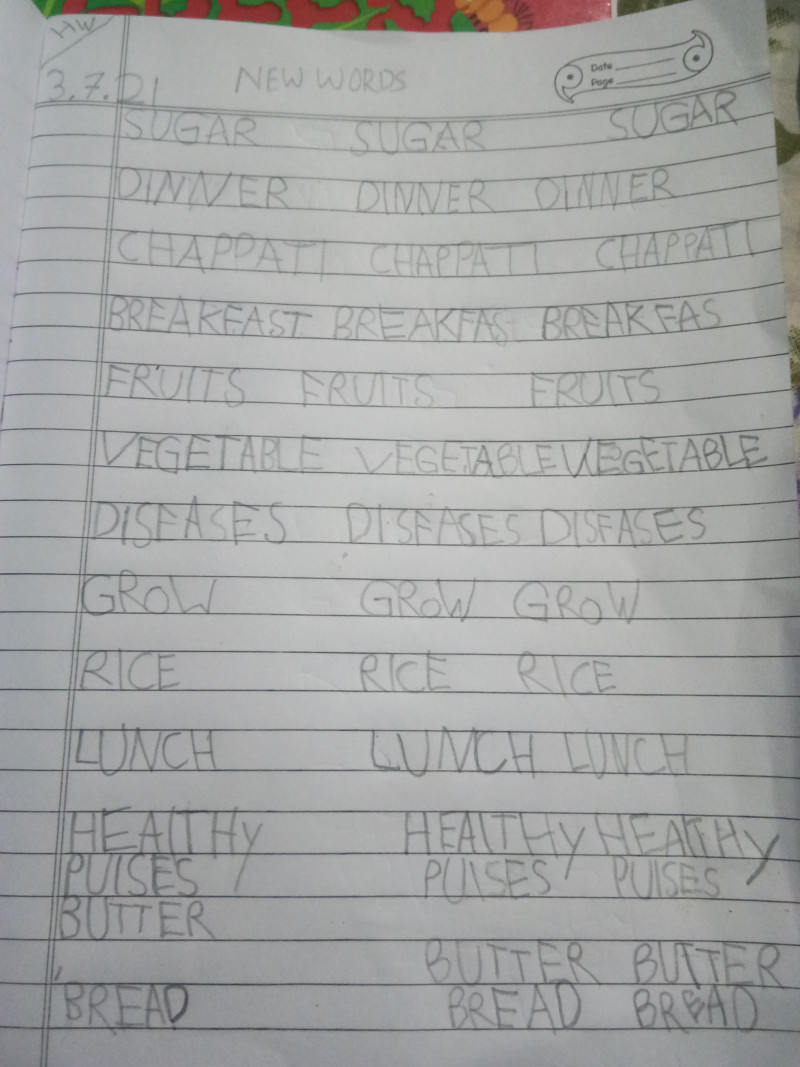 HW
3.7.21 NEW WORDS Date
Page
SUGAR SUGAR SUGAR
DINNER DINNER DINNER
CHAPPATI CHAPPATI CHAPPATI
BREAKFAST BREAKFAS BREAKFAS
FRUITS FRUITS FRUITS
VEGETABLE VEGETABLE VEGETABLE
DISEASES DISEASES DISEASES
GROW GROW GROW
RICE RICE RICE
LUNCH LUNCH LUNCH
HEAlTHy HEAlTHy HEAlTHy
PUlSES PUlSES PUlSES
BUTTER
BUTTER BUTTER
BREAD BREAD BREAD